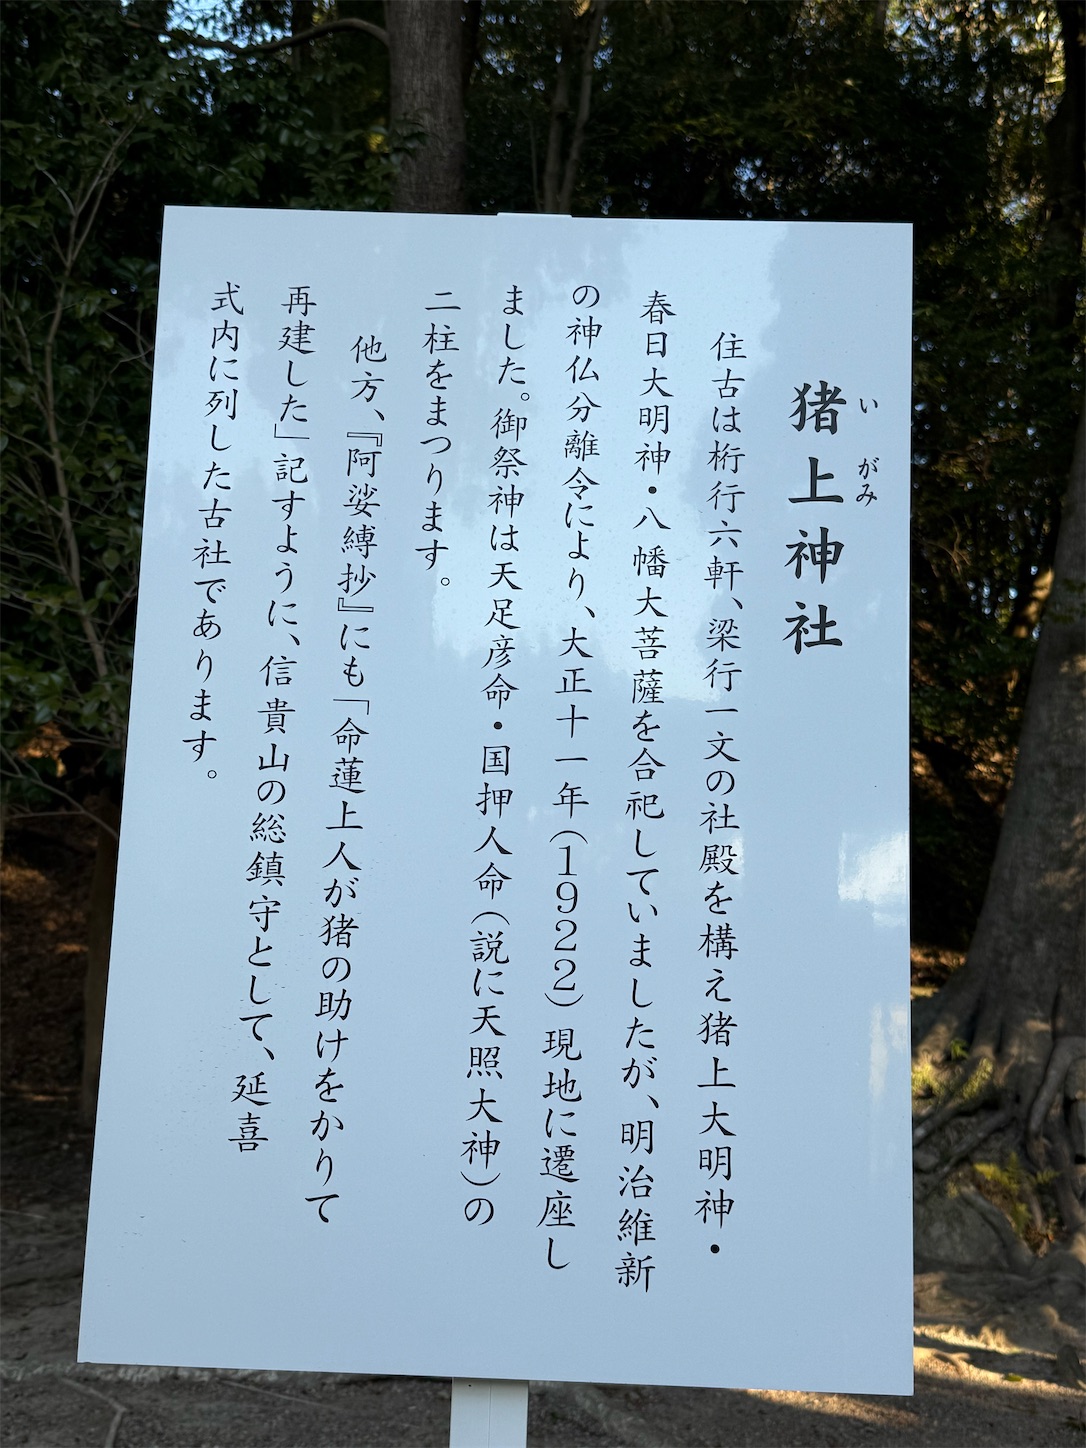 猪上神社
い がみ
住古は桁行六軒、梁行一文の社殿を構え猪上大明神・
春日大明神・八幡大菩薩を合祀していましたが、明治維新
の神仏分離令により、大正十一年(1922)現地に遷座し
ました。御祭神は天足彦命・国押人命(説に天照大神)の
二柱をまつります。
他方、『阿娑縛抄』にも「命蓮上人が猪の助けをかりて
再建した」記すように、信貴山の総鎮守として、延喜
式内に列した古社であります。